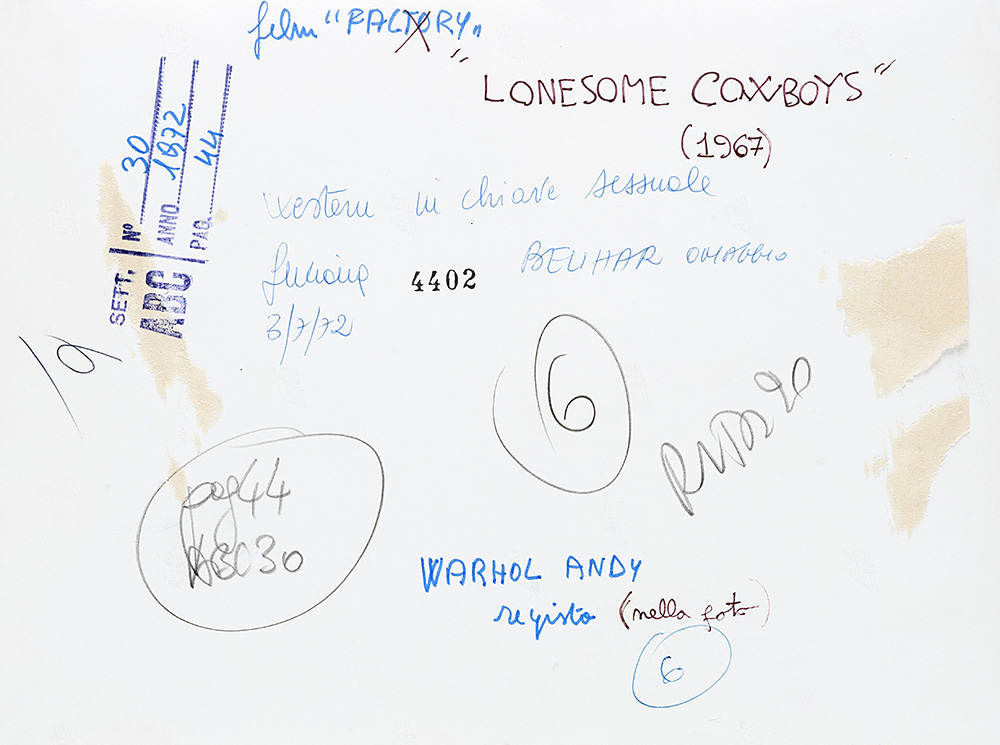 film "FACTORY"
"LONESOME COWBOYS"
(1967)
SETT. ABC
Nº 30
ANNO 1972
PAG. 44
western in chiave sessuale
4402
OMAGGIO
3/7/72
6
pag 44
ABC 30
WARHOL ANDY
regista (nella foto)
6